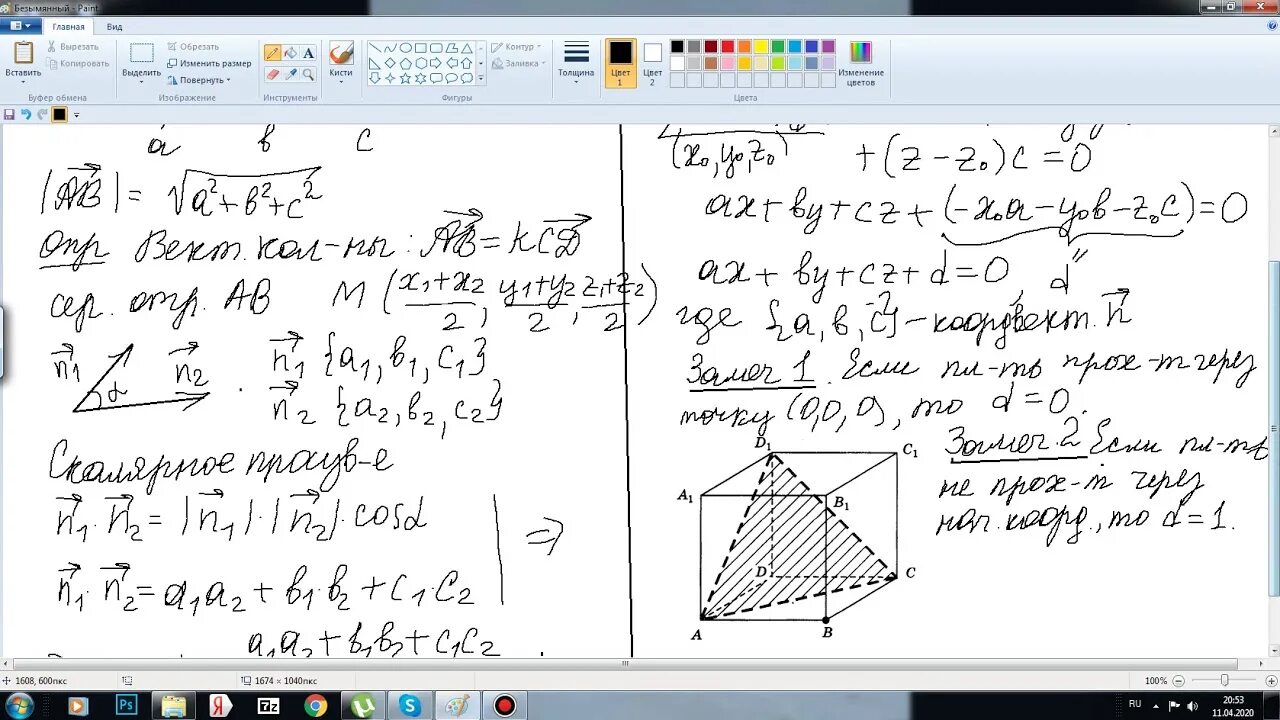 Безымянный - Paint
Главная Вид
Вставить
Вырезать
Копировать
Буфер обмена
Выделить
Обрезать
Изменить размер
Повернуть
Изображение
Инструменты
Кисти
Контур
Заливка
Фигуры
Толщина
Цвет 1
Цвет 2
Цвета
Изменение цветов
a в c
|AB| = √a²+в²+c²
Опр Вект. кол-ны: AB = kCD
сер. отр. AB M (x1+x2/2, y1+y2/2, z1+z2/2)
n1 n2 α
n1 {a1, в1, c1}
n2 {a2, в2, c2}
Скалярное произв-е
n1 · n2 = |n1| · |n2| · cosα
⇒
n1 · n2 = a1a2 + в1·в2 + c1·c2
a1a2 + в1в2 + c1c2
(x0, y0, z0)
+(z − z0)c = 0
ax + вy + cz + (−x0a − y0в − z0c) = 0
ax + вy + cz + d = 0, d
где {a, в, c} – коорд вект. n
Замеч 1. Если пл-ть прох-т через
точку (0,0,0), то d = 0.
Замеч. 2 Если пл-ть
не прох-т через
нач. коорд., то d = 1.
D1
C1
A1
B1
D
C
A
B
1608, 600пкс
1674 × 1040пкс
100%
Ps
Я
7z
RU
20:53
11.04.2020